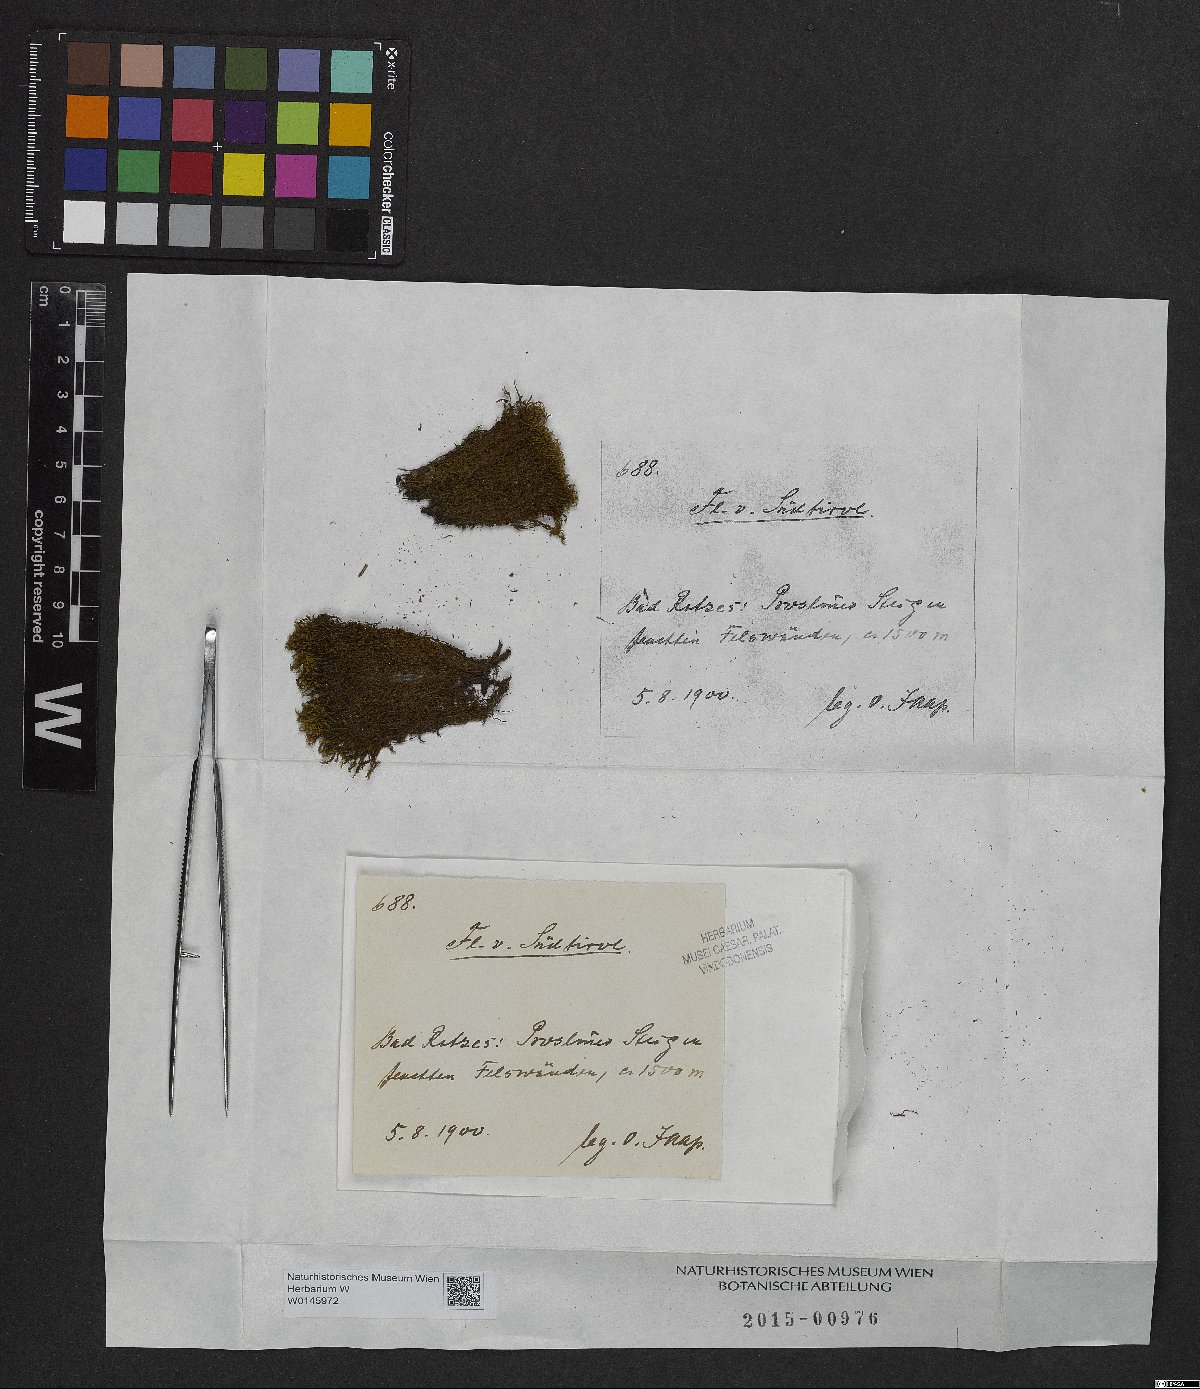 x-rite
colorchecker CLASSIC
cm
0 1 2 3 4 5 6 7 8 9 10
copyright reserved
W
688.
Fl. v. Südtirol.
Bad Ratzes: Proslines Steig an
feuchten Felswänden, c. 1500 m
5.8.1900.
leg. O. Jaap.
688.
Fl. v. Südtirol.
Bad Ratzes: Proslines Steig an
feuchten Felswänden, c. 1500 m
5.8.1900.
leg. O. Jaap.
HERBARIUM
MUSEI CAESAR. PALAT.
VINDOBONENSIS
Naturhistorisches Museum Wien
Herbarium W
W0145972
NATURHISTORISCHES MUSEUM WIEN
BOTANISCHE ABTEILUNG
2015-00976